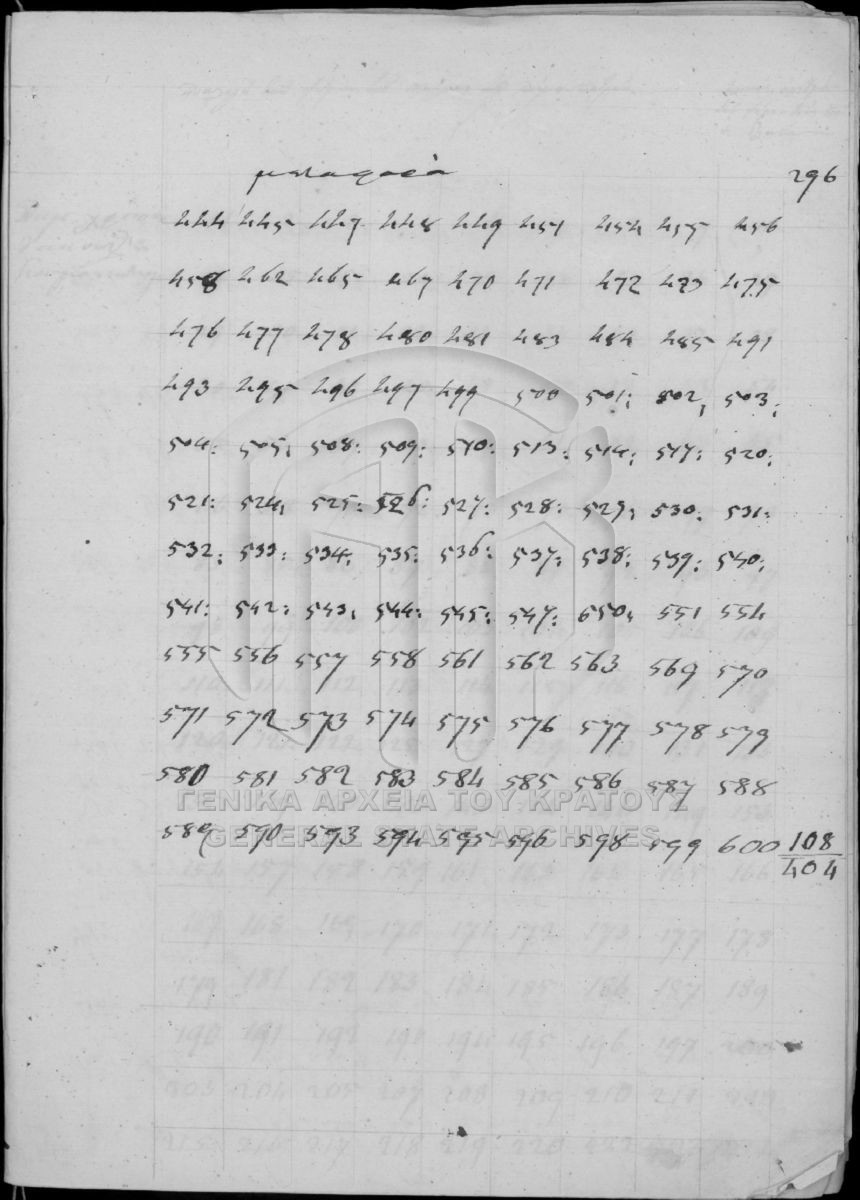 μεταφορὰ 296
444 445 447 448 449 451 454 455 456
458 462 465 467 470 471 472 473 475
476 477 478 480 481 483 484 485 491
493 495 496 497 499 500 501: 502, 503:
504: 505: 508: 509: 510: 513: 514: 517: 520:
521: 524, 525: 526: 527: 528: 529, 530: 531:
532: 533: 534: 535: 536: 537: 538: 539: 540:
541: 542: 543, 544: 545: 547: 650, 551 554
555 556 557 558 561 562 563 569 570
571 572 573 574 575 576 577 578 579
580 581 582 583 584 585 586 587 588
ΓΕΝΙΚΑ ΑΡΧΕΙΑ ΤΟΥ ΚΡΑΤΟΥΣ
589 590 593 594 595 596 598 599 600 108
GENERAL STATE ARCHIVES
404